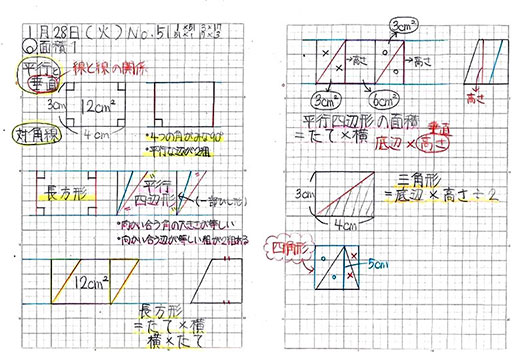 1月28日(火) No.51 1×51 3×17
51×1 17×3
◎面積1
平行と
垂直 線と線の関係
3cm 12cm²
対角線 4cm
・4つの角がみな90°
・平行な辺が2組
長方形 平行
四辺形 (一部ひし形)
・向かい合う角の大きさが等しい
・向かい合う辺が等しい組が2組ある
12cm²
長方形
=たて×横
横×たて
3cm²
→高さ →高さ
高さ
3cm² 6cm²
平行四辺形の面積
=たて×横 垂直
底辺×高さ
三角形
3cm =底辺×高さ÷2
4cm
四角形
5cm